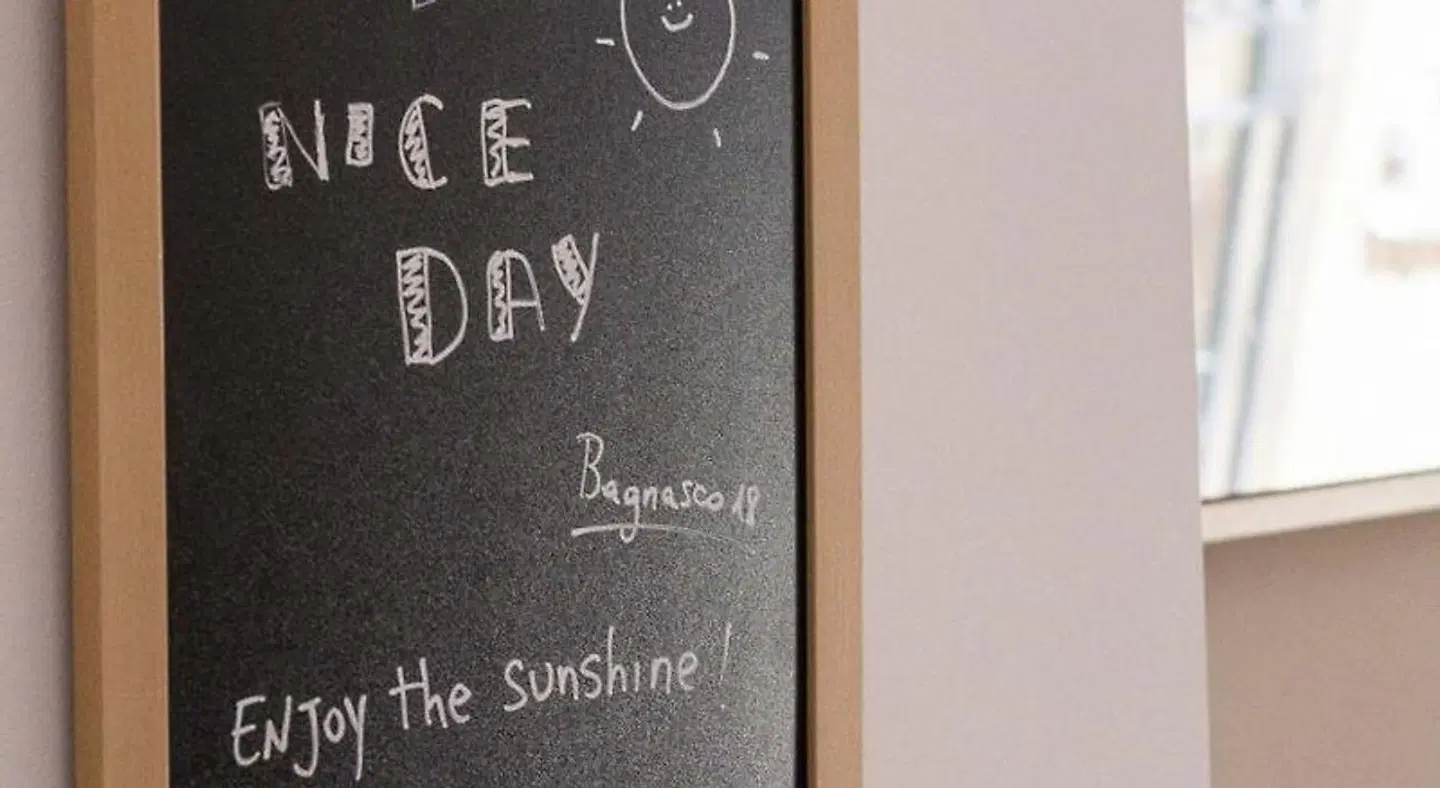 NICE
DAY
Bagnasco 18
ENJoy the sunshine!